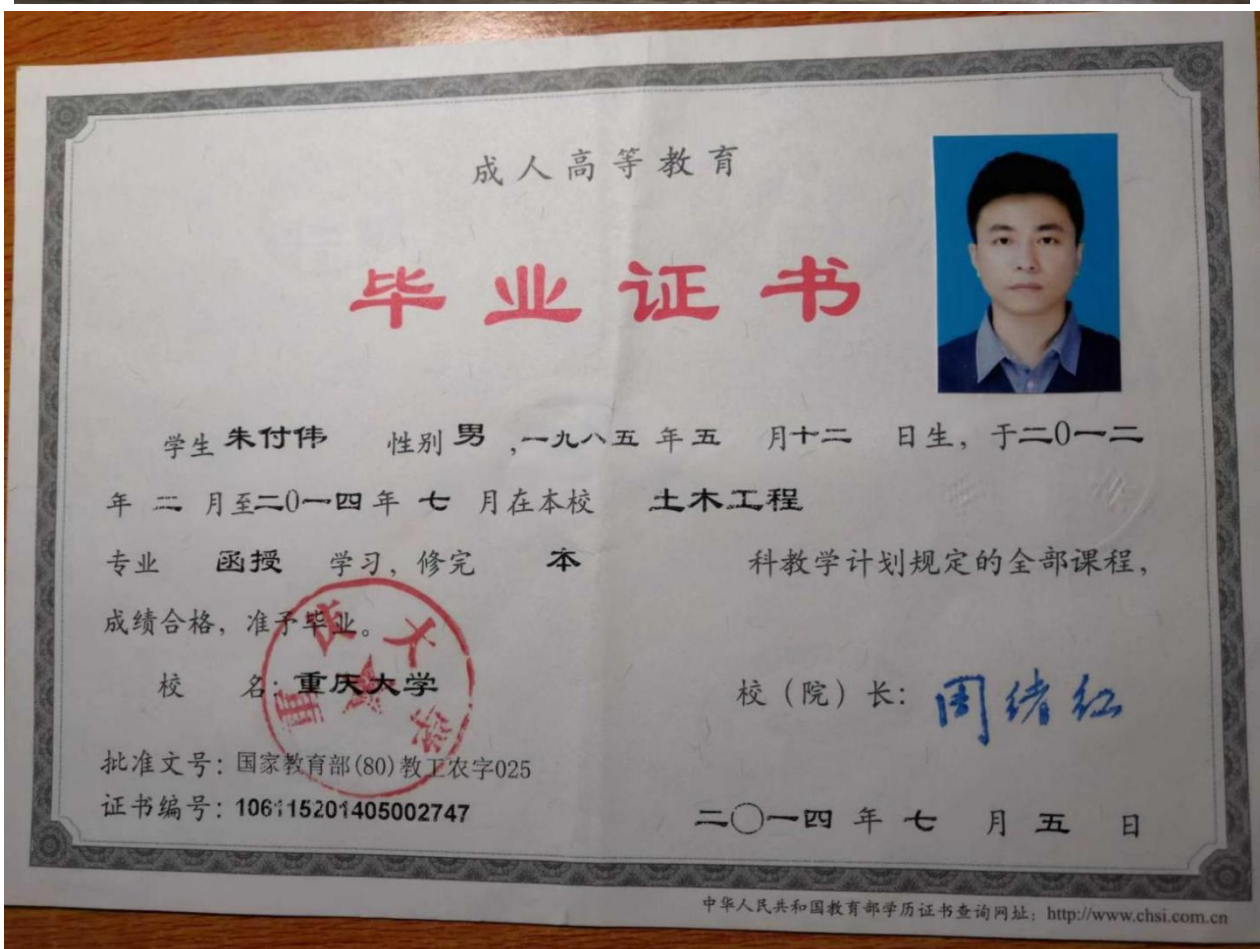 成人高等教育
毕业证书
学生 朱付伟 性别 男 ,一九八五 年 五 月 十二 日生, 于二0一二
年 二 月至二0一四 年 七 月在本校 土木工程
专业 函授 学习, 修完 本 科教学计划规定的全部课程,
成绩合格, 准予毕业。
校 名: 重庆大学
重庆大学
校（院）长: 周绪红
批准文号: 国家教育部(80)教工农字025
证书编号: 106115201405002747
二〇一四 年 七 月 五 日
中华人民共和国教育部学历证书查询网址: http://www.chsi.com.cn